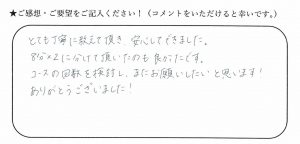 ★ご感想・ご要望をご記入ください!(コメントをいただけると幸いです。)
とても丁寧に教えて頂き、安心してできました。
8分×2に分けて頂いたのも良かったです。
コースの回数を検討し、またお願いしたいと思います!
ありがとうございました!